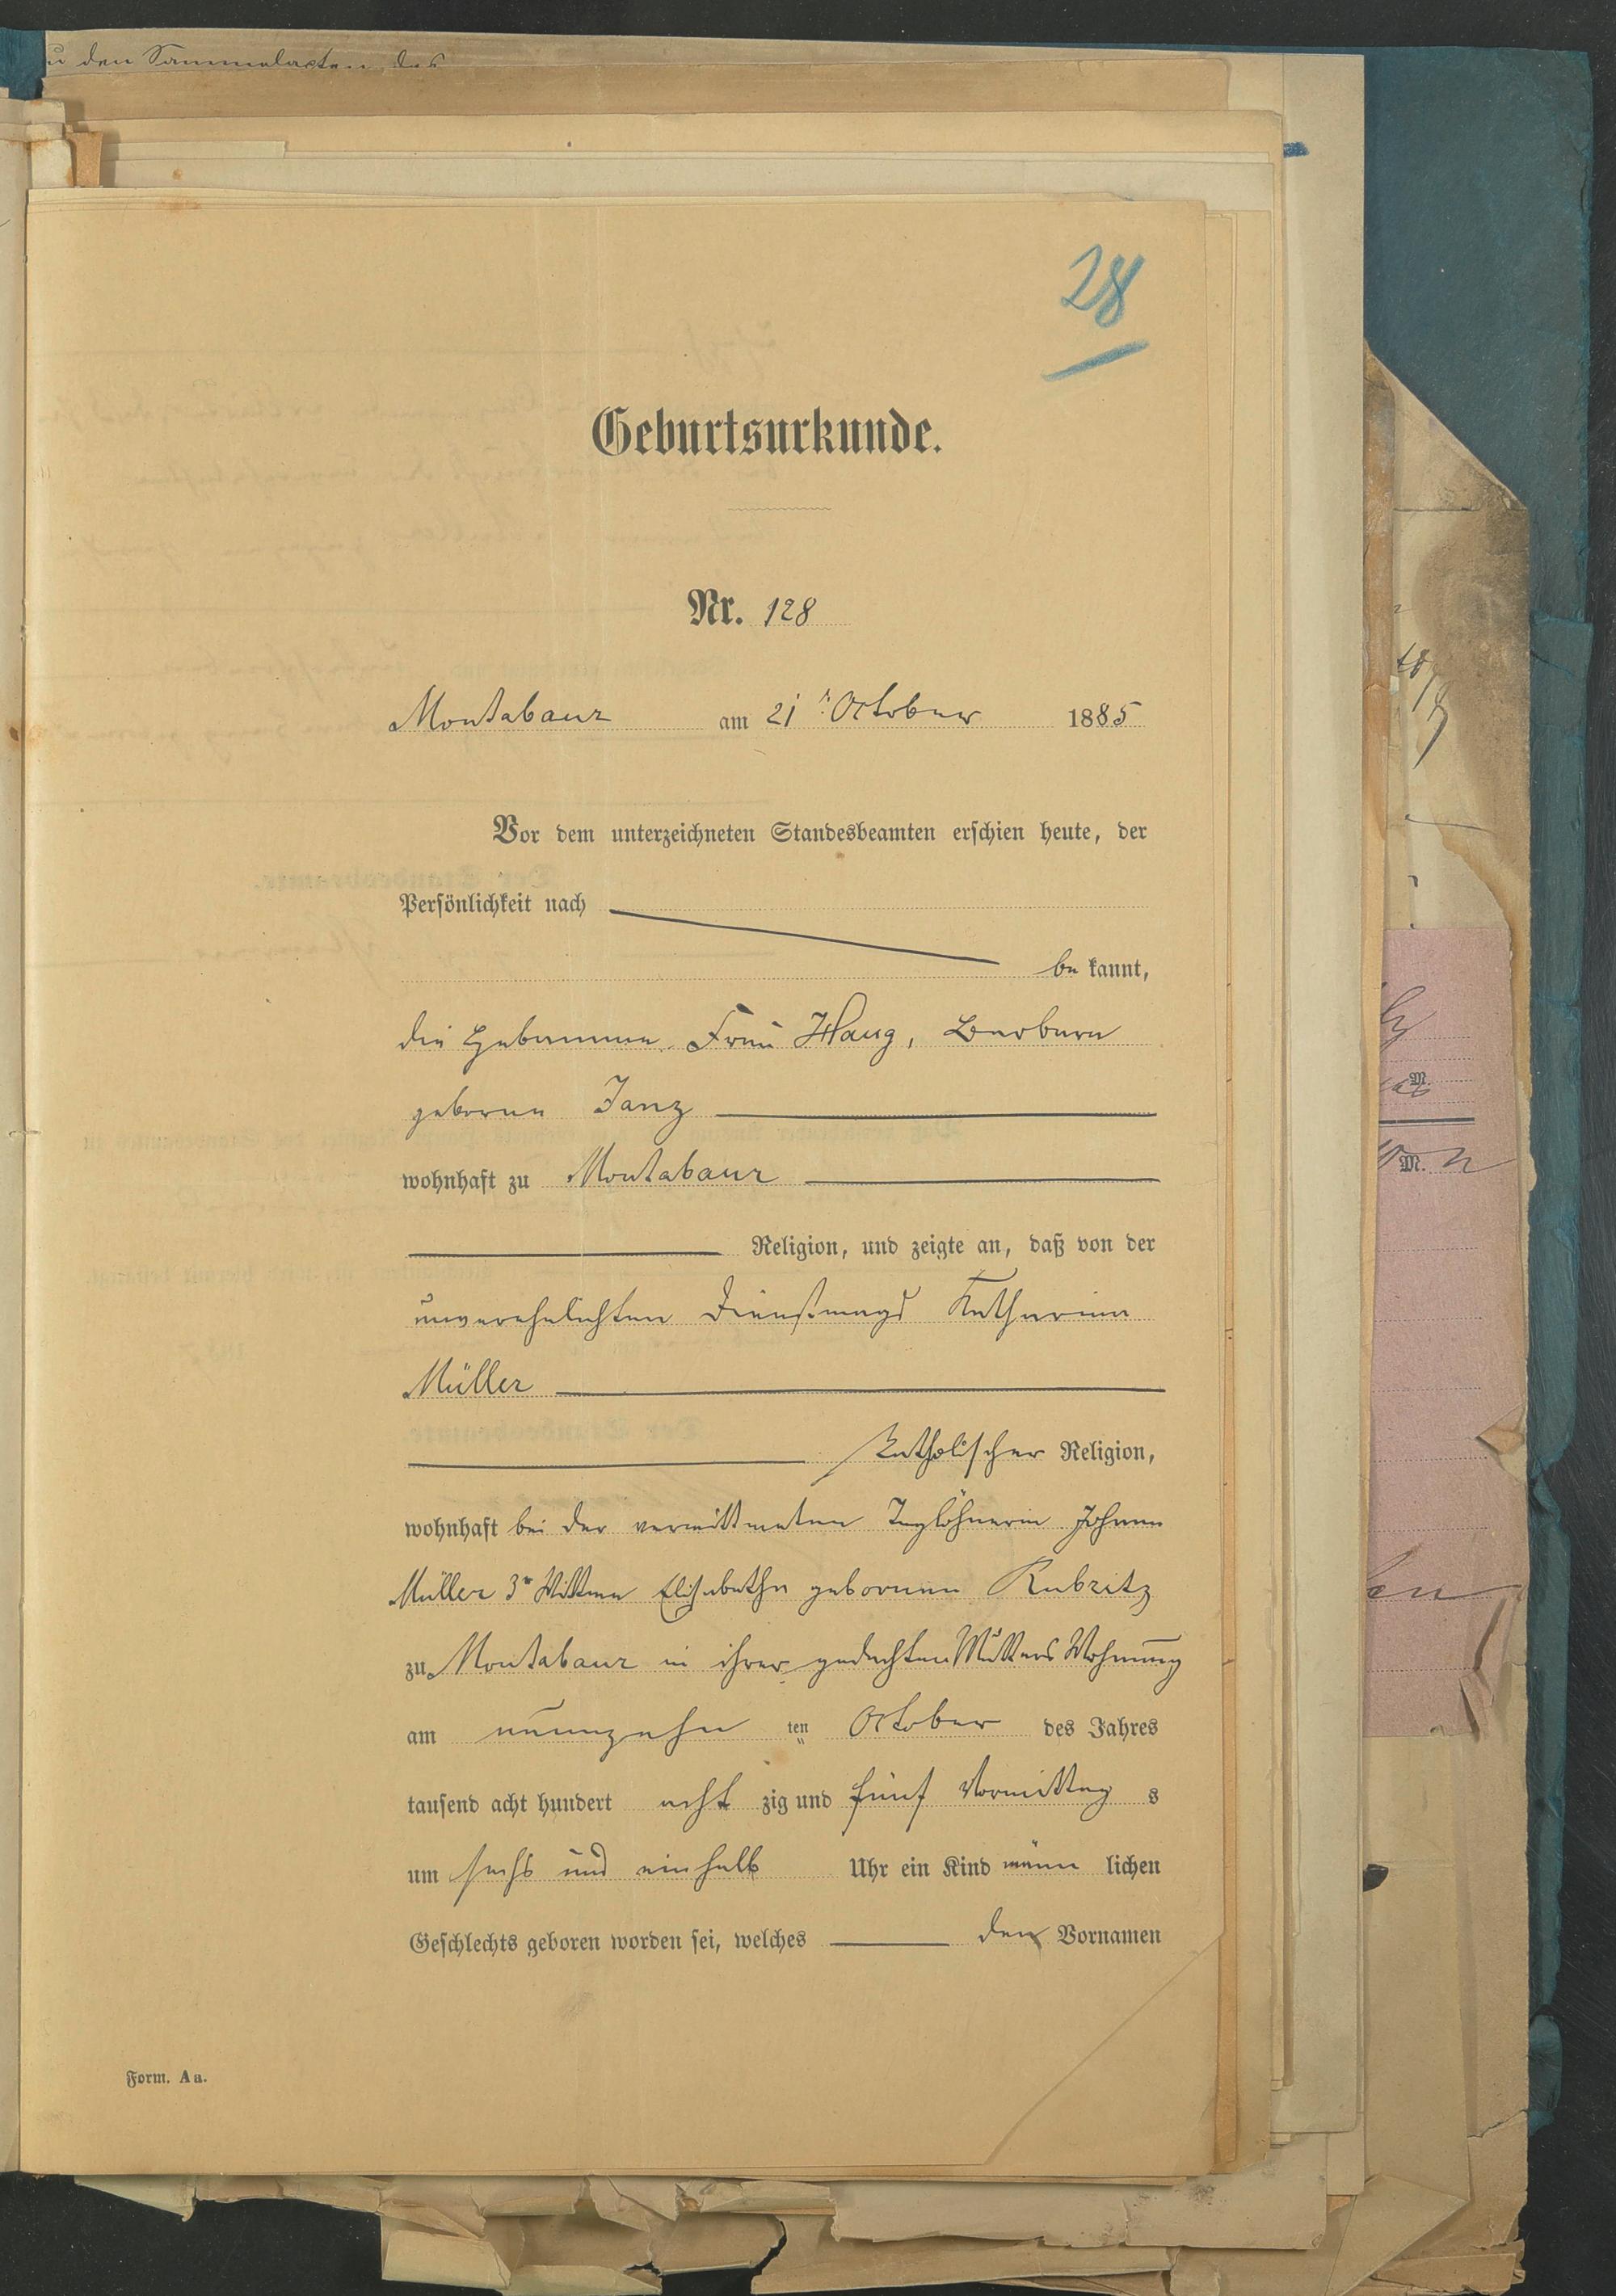 u den Sammelacten des
28
Geburtsurkunde.
Nr. 128
Montabaur am 21r October 1885
Vor dem unterzeichneten Standesbeamten erschien heute, der
Persönlichkeit nach
be kannt,
die Hebamme Frau Haug, Barbara
geborne Janz
wohnhaft zu Montabaur
Religion, und zeigte an, daß von der
unverehelichten Dienstmagd Katharina
Müller
katholischer Religion,
wohnhaft bei der verwittweten Taglöhnerin Johann
Müller 3r Wittwe Elisabetha gebornen Kubritz
zu Montabaur in ihrer gedachten Mutters Wohnung
am neunzehn ten October des Jahres
tausend acht hundert acht zig und fünf Vormittag s
um sechs und einhalb Uhr ein Kind männ lichen
Geschlechts geboren worden sei, welches den Vornamen
Form. Aa.
M.
M.